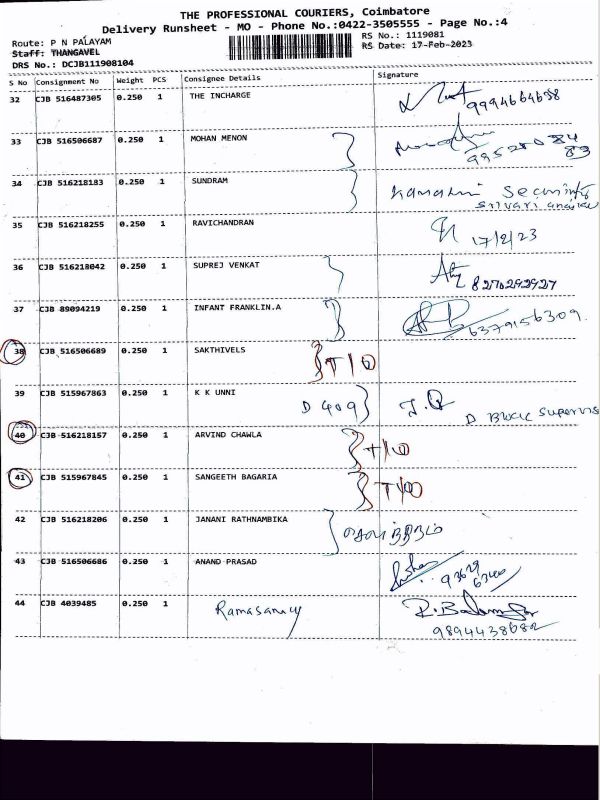 THE PROFESSIONAL COURIERS, Coimbatore
Delivery Runsheet - MO - Phone No.:0422-3505555 - Page No.:4
Route: P N PALAYAM
RS No.: 1119081
Staff: THANGAVEL
RS Date: 17-Feb-2023
DRS No.: DCJB111908104
S No Consignment No Weight PCS Consignee Details Signature
32 CJB 516487305 0.250 1 THE INCHARGE 9994664698
33 CJB 516506687 0.250 1 MOHAN MENON
34 CJB 516218183 0.250 1 SUNDRAM Kamatchi Security
35 CJB 516218255 0.250 1 RAVICHANDRAN 17/2/23
36 CJB 516218042 0.250 1 SUPREJ VENKAT 8270292927
37 CJB 89094219 0.250 1 INFANT FRANKLIN.A 6379156309.
38 CJB 516506689 0.250 1 SAKTHIVELS T/O
39 CJB 515967863 0.250 1 K K UNNI D 409 D Block Supervis
40 CJB 516218157 0.250 1 ARVIND CHAWLA T/O
41 CJB 515967845 0.250 1 SANGEETH BAGARIA T/O
42 CJB 516218206 0.250 1 JANANI RATHNAMBIKA
43 CJB 516506686 0.250 1 ANAND PRASAD
44 CJB 4039485 0.250 1 Ramasamy
9894438682